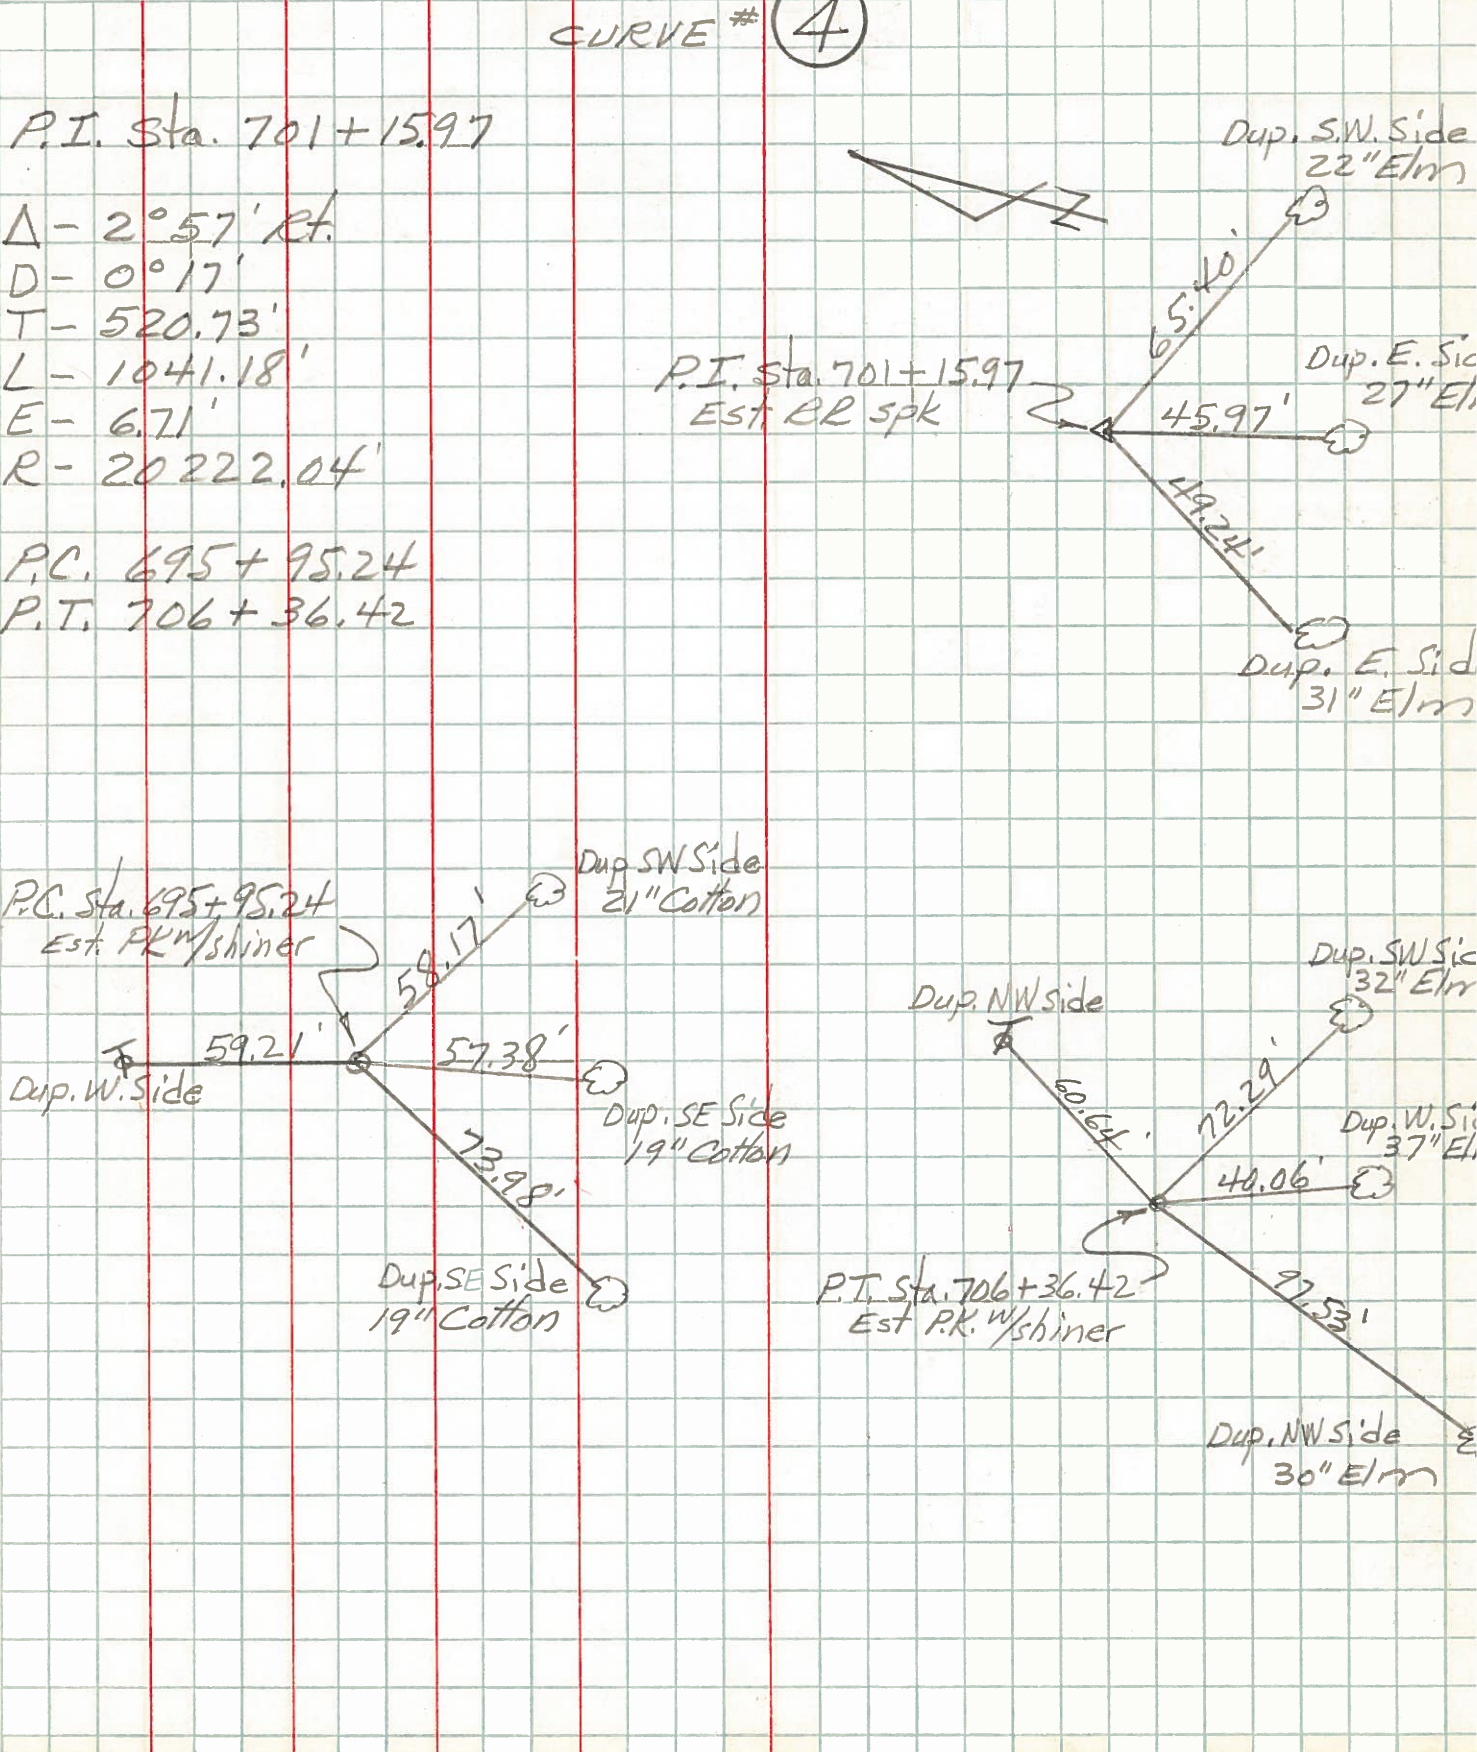 CURVE # 4
P.I. Sta. 701+15.97
Δ - 2°57' Rt.
D - 0°17'
T - 520.73'
L - 1041.18'
E - 6.71'
R - 20222.04'
P.C. 695+95.24
P.T. 706+36.42
N
Dup. S.W. Side
22" Elm
65.40'
P.I. Sta. 701+15.97
Est. RR spk
Dup. E. Sid
27" El
45.97'
49.24'
Dup. E. Sid
31" Elm
P.C. Sta. 695+95.24
Est. PK w/shiner
Dup SW Side
21" Cotton
58.17'
59.21'
57.38'
Dup. W. Side
Dup. SE Side
19" Cotton
73.98'
Dup. SE Side
19" Cotton
Dup. NW Side
Dup. SW Sid
32" Elm
60.64'
72.29'
Dup. W. Sid
37" El
40.06'
P.T. Sta. 706+36.42
Est P.K. w/shiner
97.53'
Dup. NW Side
30" Elm